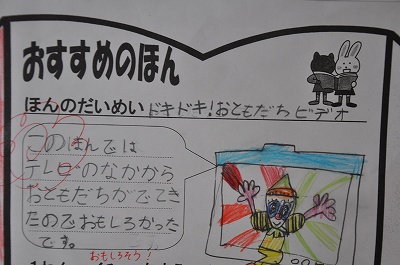 おすすめのほん
ほんのだいめい ドキドキ!おともだちビデオ
このほんでは
テレビのなかから
おともだちがでてき
たのでおもしろかった
です。
おもしろそう!